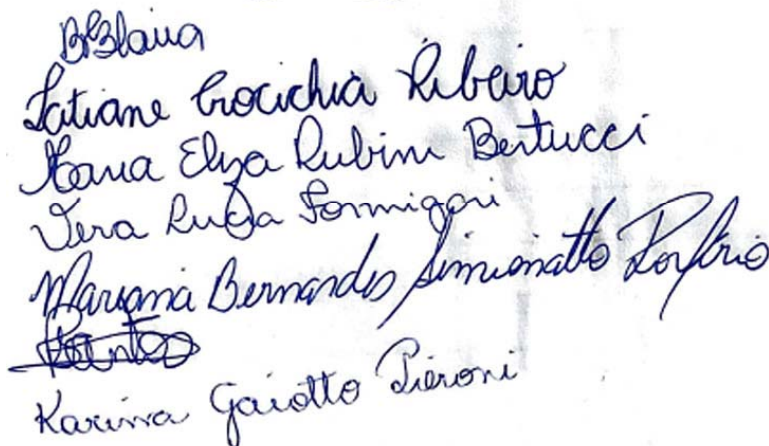 Tatiane Crocichia Ribeiro
Maria Elyza Rubim Bertucci
Vera Lucia Formigari
Mariana Bernardes Simionatto Porfírio
Karina Gaiotto Pieroni